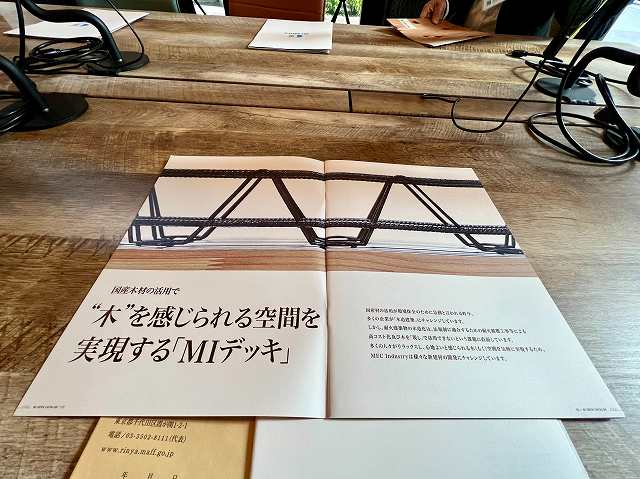 国産木材の活用で
“木”を感じられる空間を
実現する「MIデッキ」
国産材の活用が環境保全のために急務と言われる昨今、
多くの企業が「木造建築」にチャレンジしています。
しかし、耐火建築物の木造化は、法規制に適合するための耐火被覆工事等による
高コスト化及び木を「現し」で活用できないという課題に直面しています。
多くの人々がリラックスし、心地よいと感じられる木（もく）空間を公共に実現するため、
MEC Industryは様々な新建材の開発にチャレンジしています。
東京都千代田区霞が関1-2-1
電話／03-3502-8111(代表)
www.rinya.maff.go.jp
年 月 日